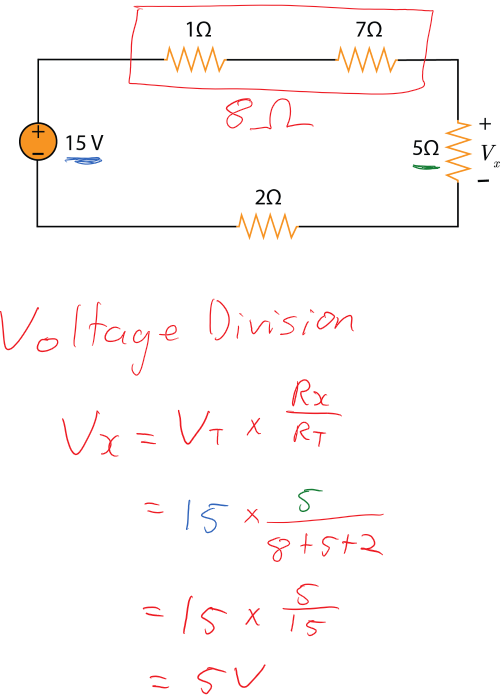 1Ω 7Ω
8Ω
+
15 V
−
+
5Ω Vx
−
2Ω
Voltage Division
Vx = VT × Rx/RT
= 15 × 5/(8+5+2)
= 15 × 5/15
= 5V